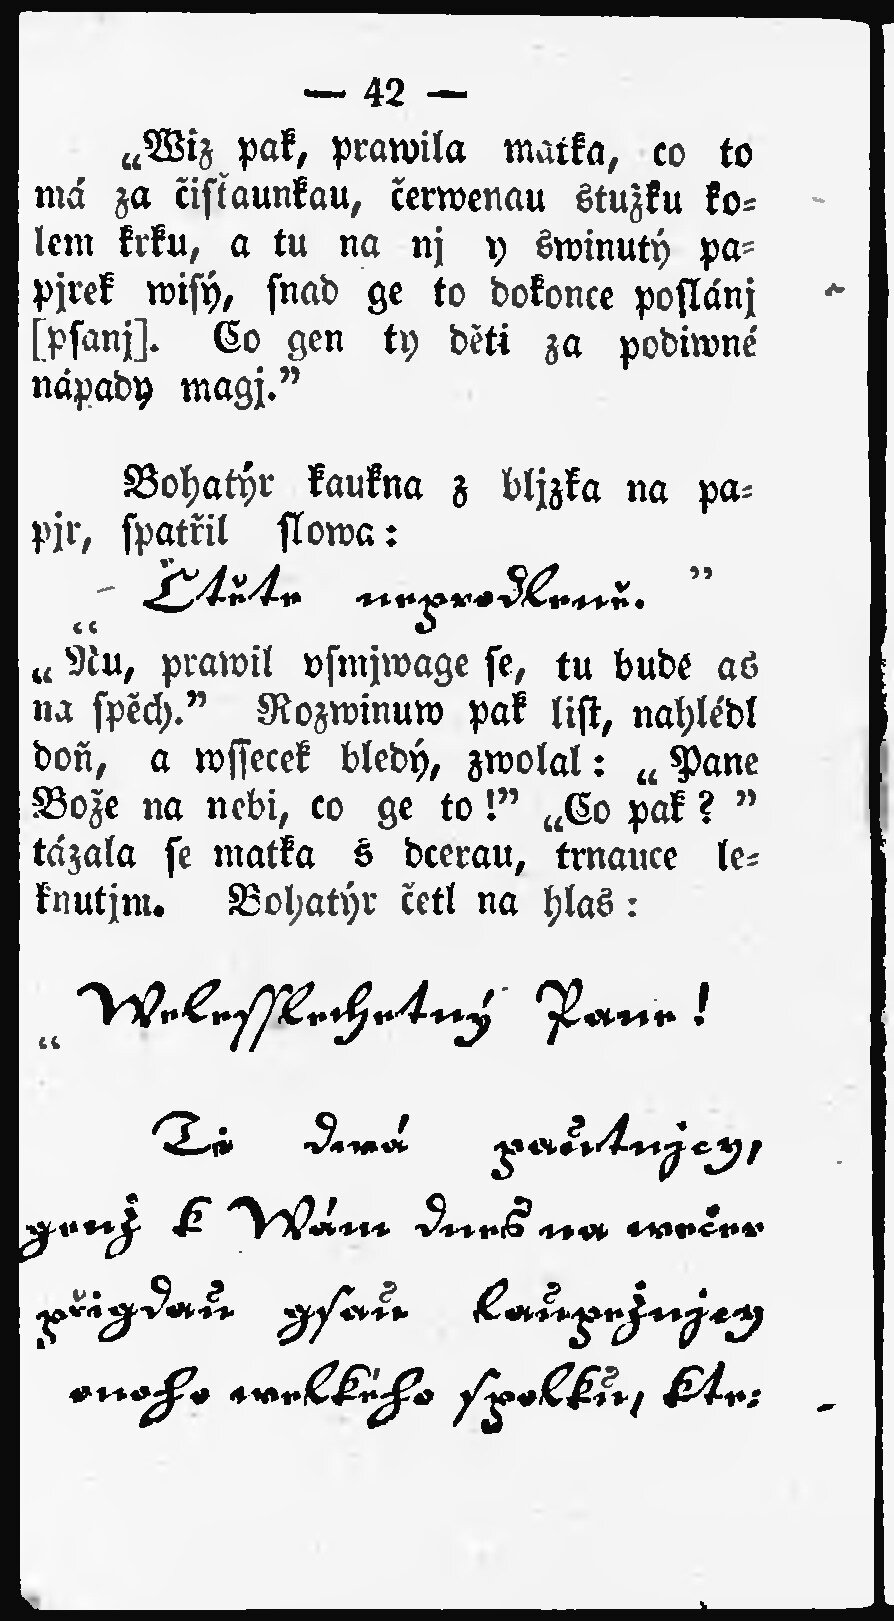 — 42 —
„Wiz pak, prawila matka, co to
má za čisťaunkau, červenau stužku ko=
lem krku, a tu na nj y swinutý pa=
pjrek wisý, snad ge to dokonce poslánj
[psanj]. Co gen ty děti za podiwné
nápady magj.”
Bohatýr kaukna z bljzka na pa=
pjr, spatřil slowa:
„Čtěte neprodleně.”
„Nu, prawil vsmjwage se, tu bude as
na spěch.” Rozwinuw pak list, nahlédl
doň, a wssecek bledý, zwolal: „Pane
Bože na nebi, co ge to!” „Co pak?”
tázala se matka s dcerau, trnauce le=
knutjm. Bohatýr četl na hlas:
„Welesslechetný Pane!
Ti dwá pautnjcy,
genž k Wám dnes na wečer
přigdau gsau laupežnjcy
onoho welkého spolku, kte=